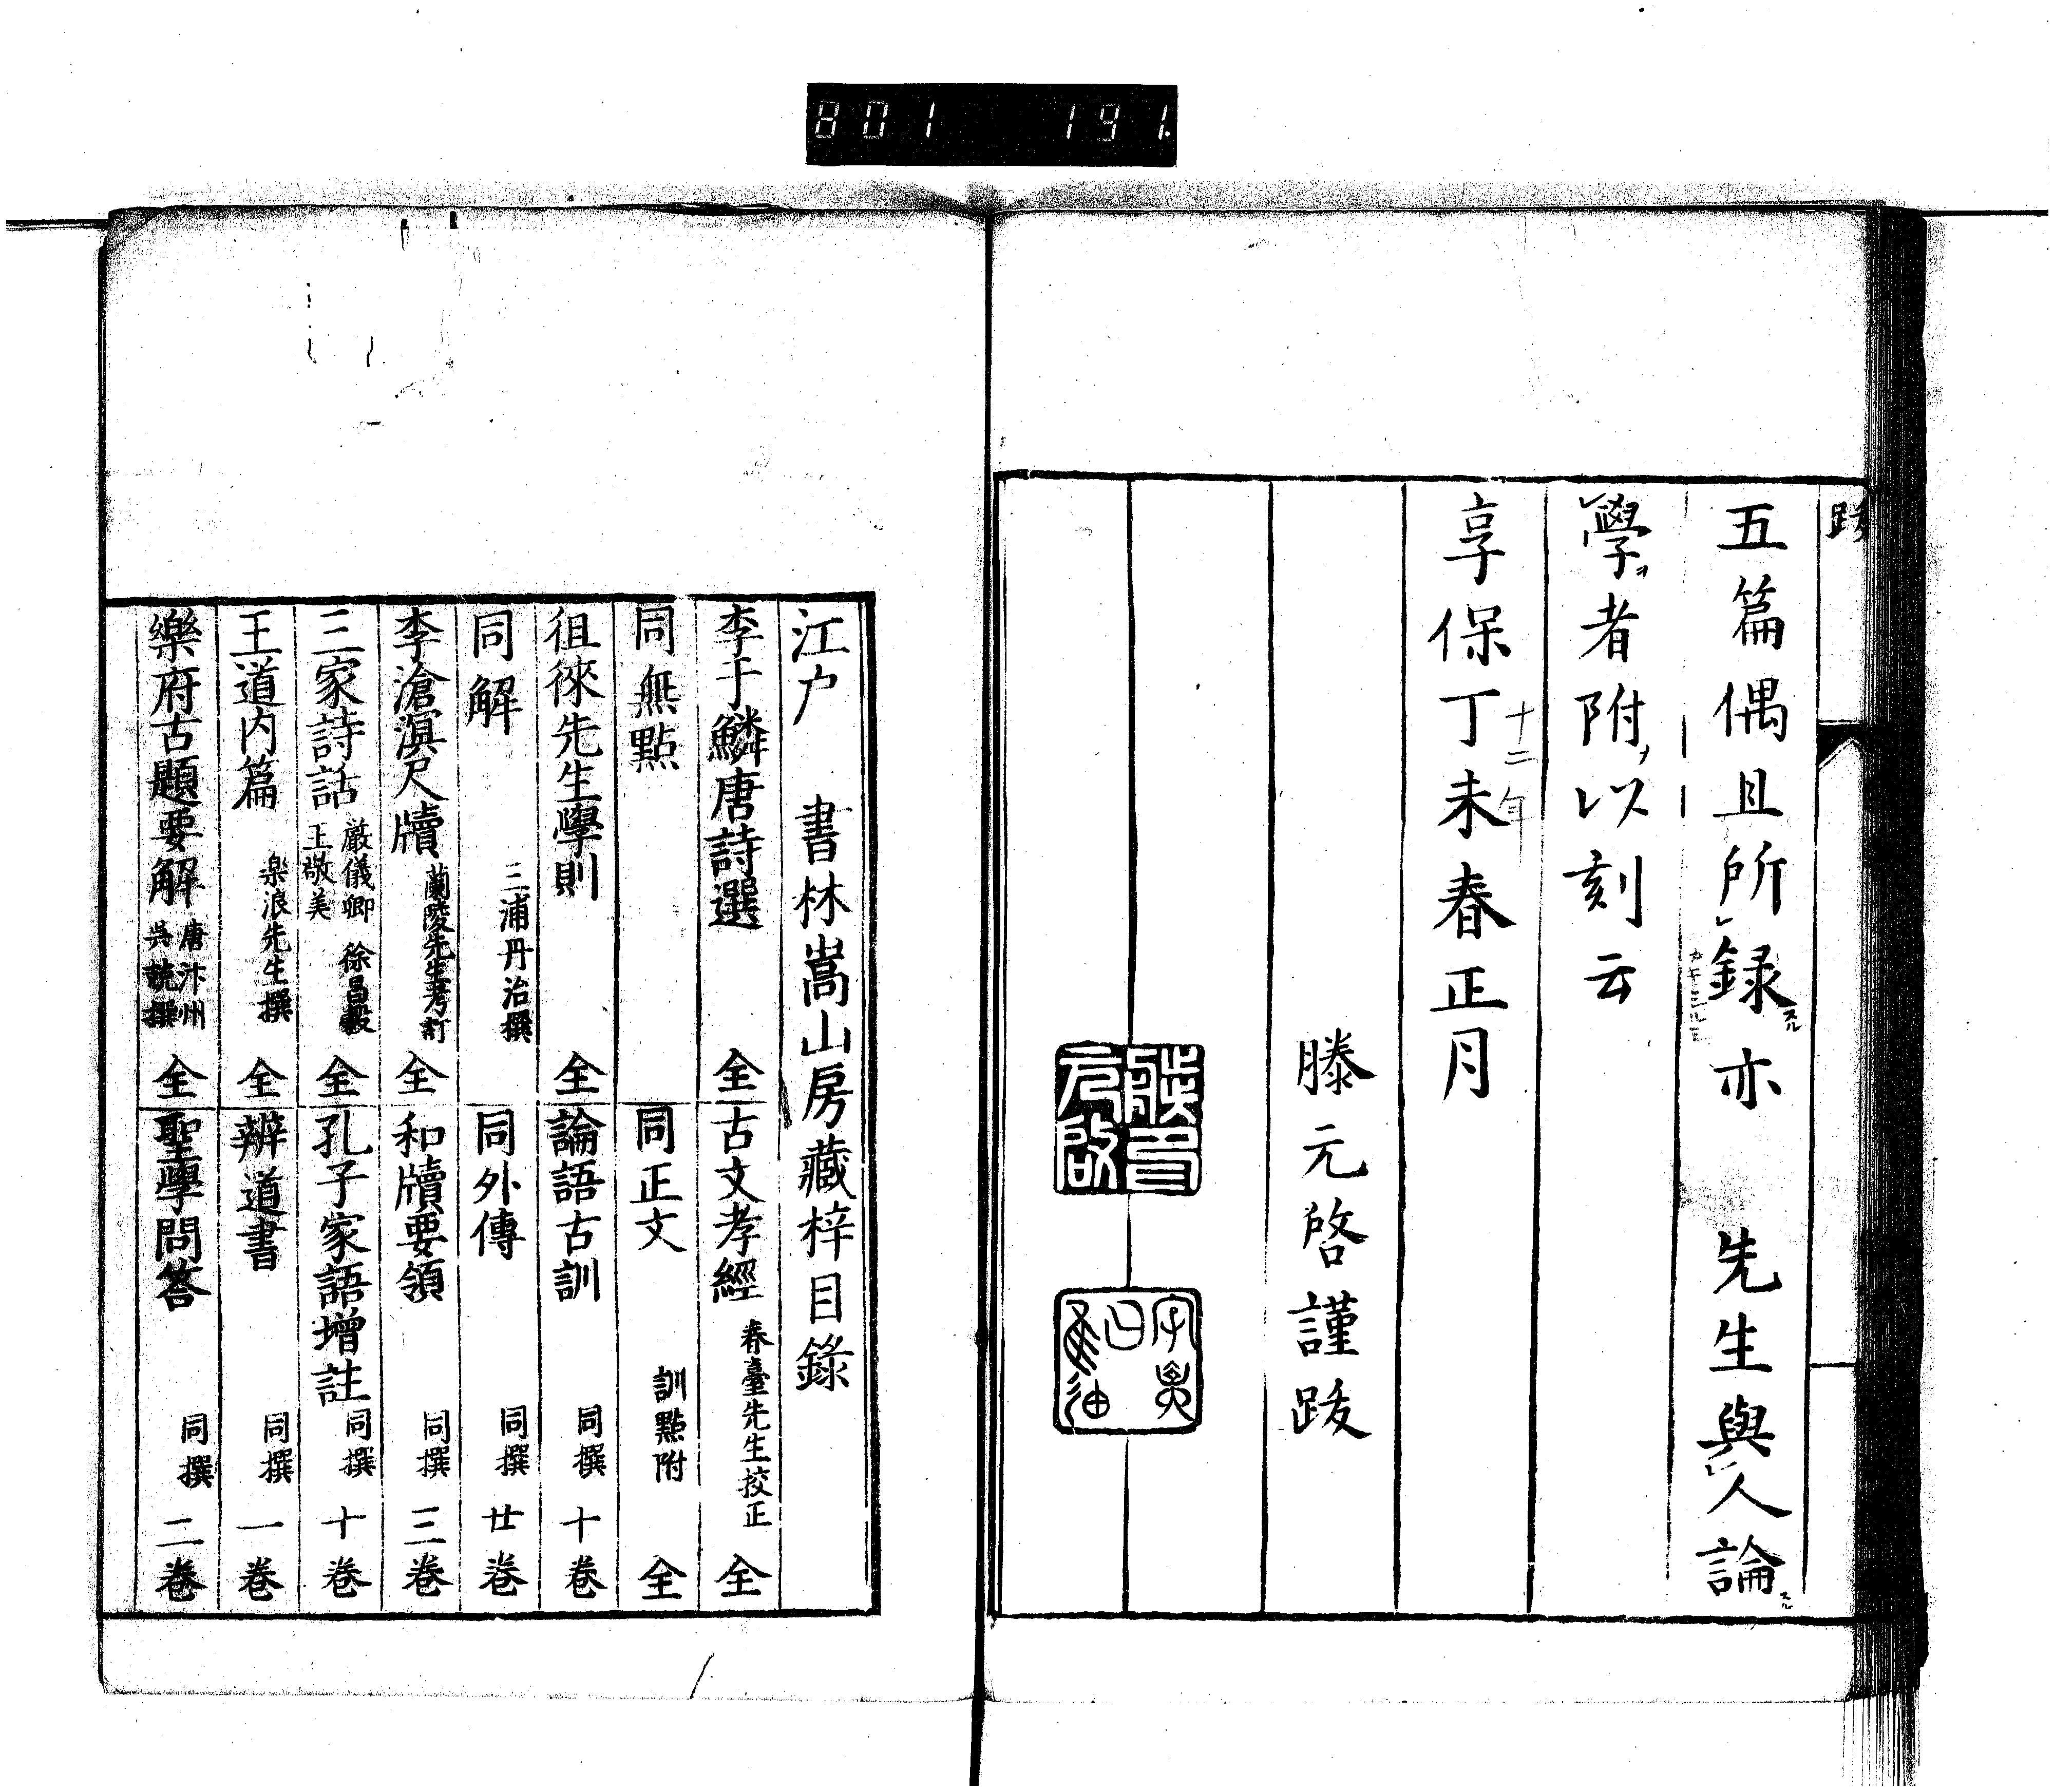 801 191
跋
五篇偶且所録スル亦 先生與人論スル
カキシルモ
學ヲ者附以刻云
享保丁未春正月
十二年
滕元啓謹跋
江戸 書林嵩山房藏梓目錄
李于鱗唐詩選 全
古文孝經 春臺先生挍正 全
同無點
同正文 訓點附 全
徂徠先生學則 全
論語古訓 同撰 十巻
同解 三浦丹治撰
同外傳 同撰 廿巻
李滄溟尺牘 蘭陵先生考訂 全
和牘要領 同撰 三巻
三家詩話 嚴儀卿 徐昌穀 王敬美 全
孔子家語增註 同撰 十巻
王道内篇 楽浪先生撰 全
辨道書 同撰 一巻
樂府古題要解 唐汴州 呉兢撰 全
聖學問答 同撰 二巻